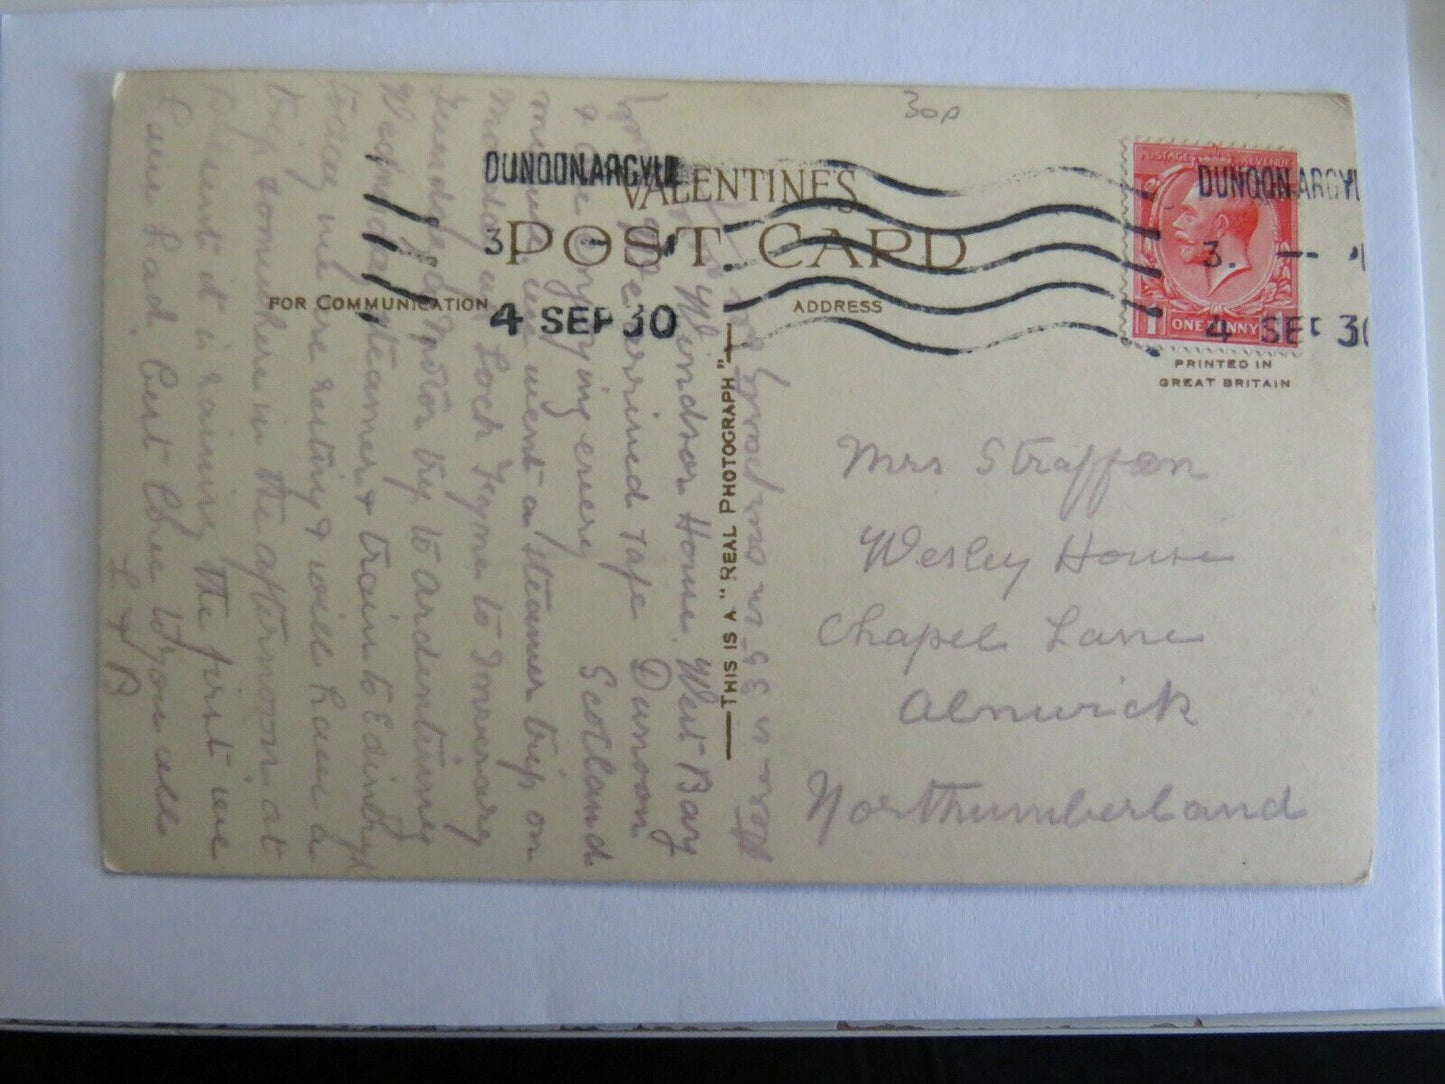 30p
VALENTINE'S
POST CARD
FOR COMMUNICATION
ADDRESS
DUNOON.ARGYLL
3
4 SEP 30
DUNOON.ARGYLL
3.
4 SEP 30
POSTAGE REVENUE
ONE PENNY
PRINTED IN
GREAT BRITAIN
THIS IS A "REAL PHOTOGRAPH"
Mrs Straffen
Wesley House
Chapel Lane
Alnwick
Northumberland
Windsor House. West Bay
Dunoon
We arrived safe Scotland
& are enjoying every
minute, we went a steamer trip on
Monday up Loch Fyne to Inverary
Tuesday a Motor trip to Ardentinny
Wednesday steamer & train to Edinbgh
today we are resting & will have a
trip somewhere in the afternoon. at
present it is raining the first we
have had. Best love to you all
L & B